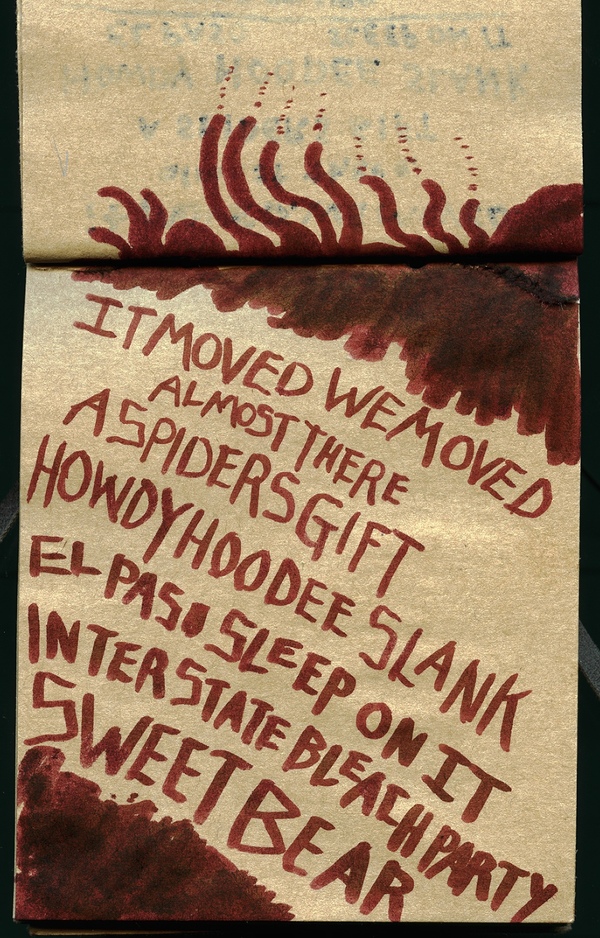 IT MOVED WE MOVED
ALMOST THERE
A SPIDERS GIFT
HOWDY HOODEE SLANK
EL PASO SLEEP ON IT
INTERSTATE BLEACH PARTY
SWEET BEAR